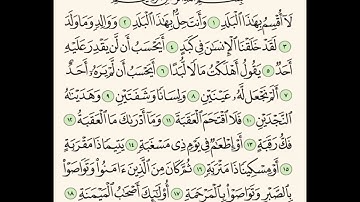 لَا أُقْسِمُ بِهَٰذَا الْبَلَدِ ١ وَأَنتَ حِلٌّ بِهَٰذَا الْبَلَدِ ٢ وَوَالِدٍ وَمَا وَلَدَ
٣ لَقَدْ خَلَقْنَا الْإِنسَانَ فِي كَبَدٍ ٤ أَيَحْسَبُ أَن لَّن يَقْدِرَ عَلَيْهِ
أَحَدٌ ٥ يَقُولُ أَهْلَكْتُ مَالًا لُّبَدًا ٦ أَيَحْسَبُ أَن لَّمْ يَرَهُ أَحَدٌ
٧ أَلَمْ نَجْعَل لَّهُ عَيْنَيْنِ ٨ وَلِسَانًا وَشَفَتَيْنِ ٩ وَهَدَيْنَاهُ
النَّجْدَيْنِ ١٠ فَلَا اقْتَحَمَ الْعَقَبَةَ ١١ وَمَا أَدْرَاكَ مَا الْعَقَبَةُ ١٢
فَكُّ رَقَبَةٍ ١٣ أَوْ إِطْعَامٌ فِي يَوْمٍ ذِي مَسْغَبَةٍ ١٤ يَتِيمًا ذَا مَقْرَبَةٍ
١٥ أَوْ مِسْكِينًا ذَا مَتْرَبَةٍ ١٦ ثُمَّ كَانَ مِنَ الَّذِينَ آمَنُوا وَتَوَاصَوْا
بِالصَّبْرِ وَتَوَاصَوْا بِالْمَرْحَمَةِ ١٧ أُولَٰئِكَ أَصْحَابُ الْمَيْمَنَةِ ١٨